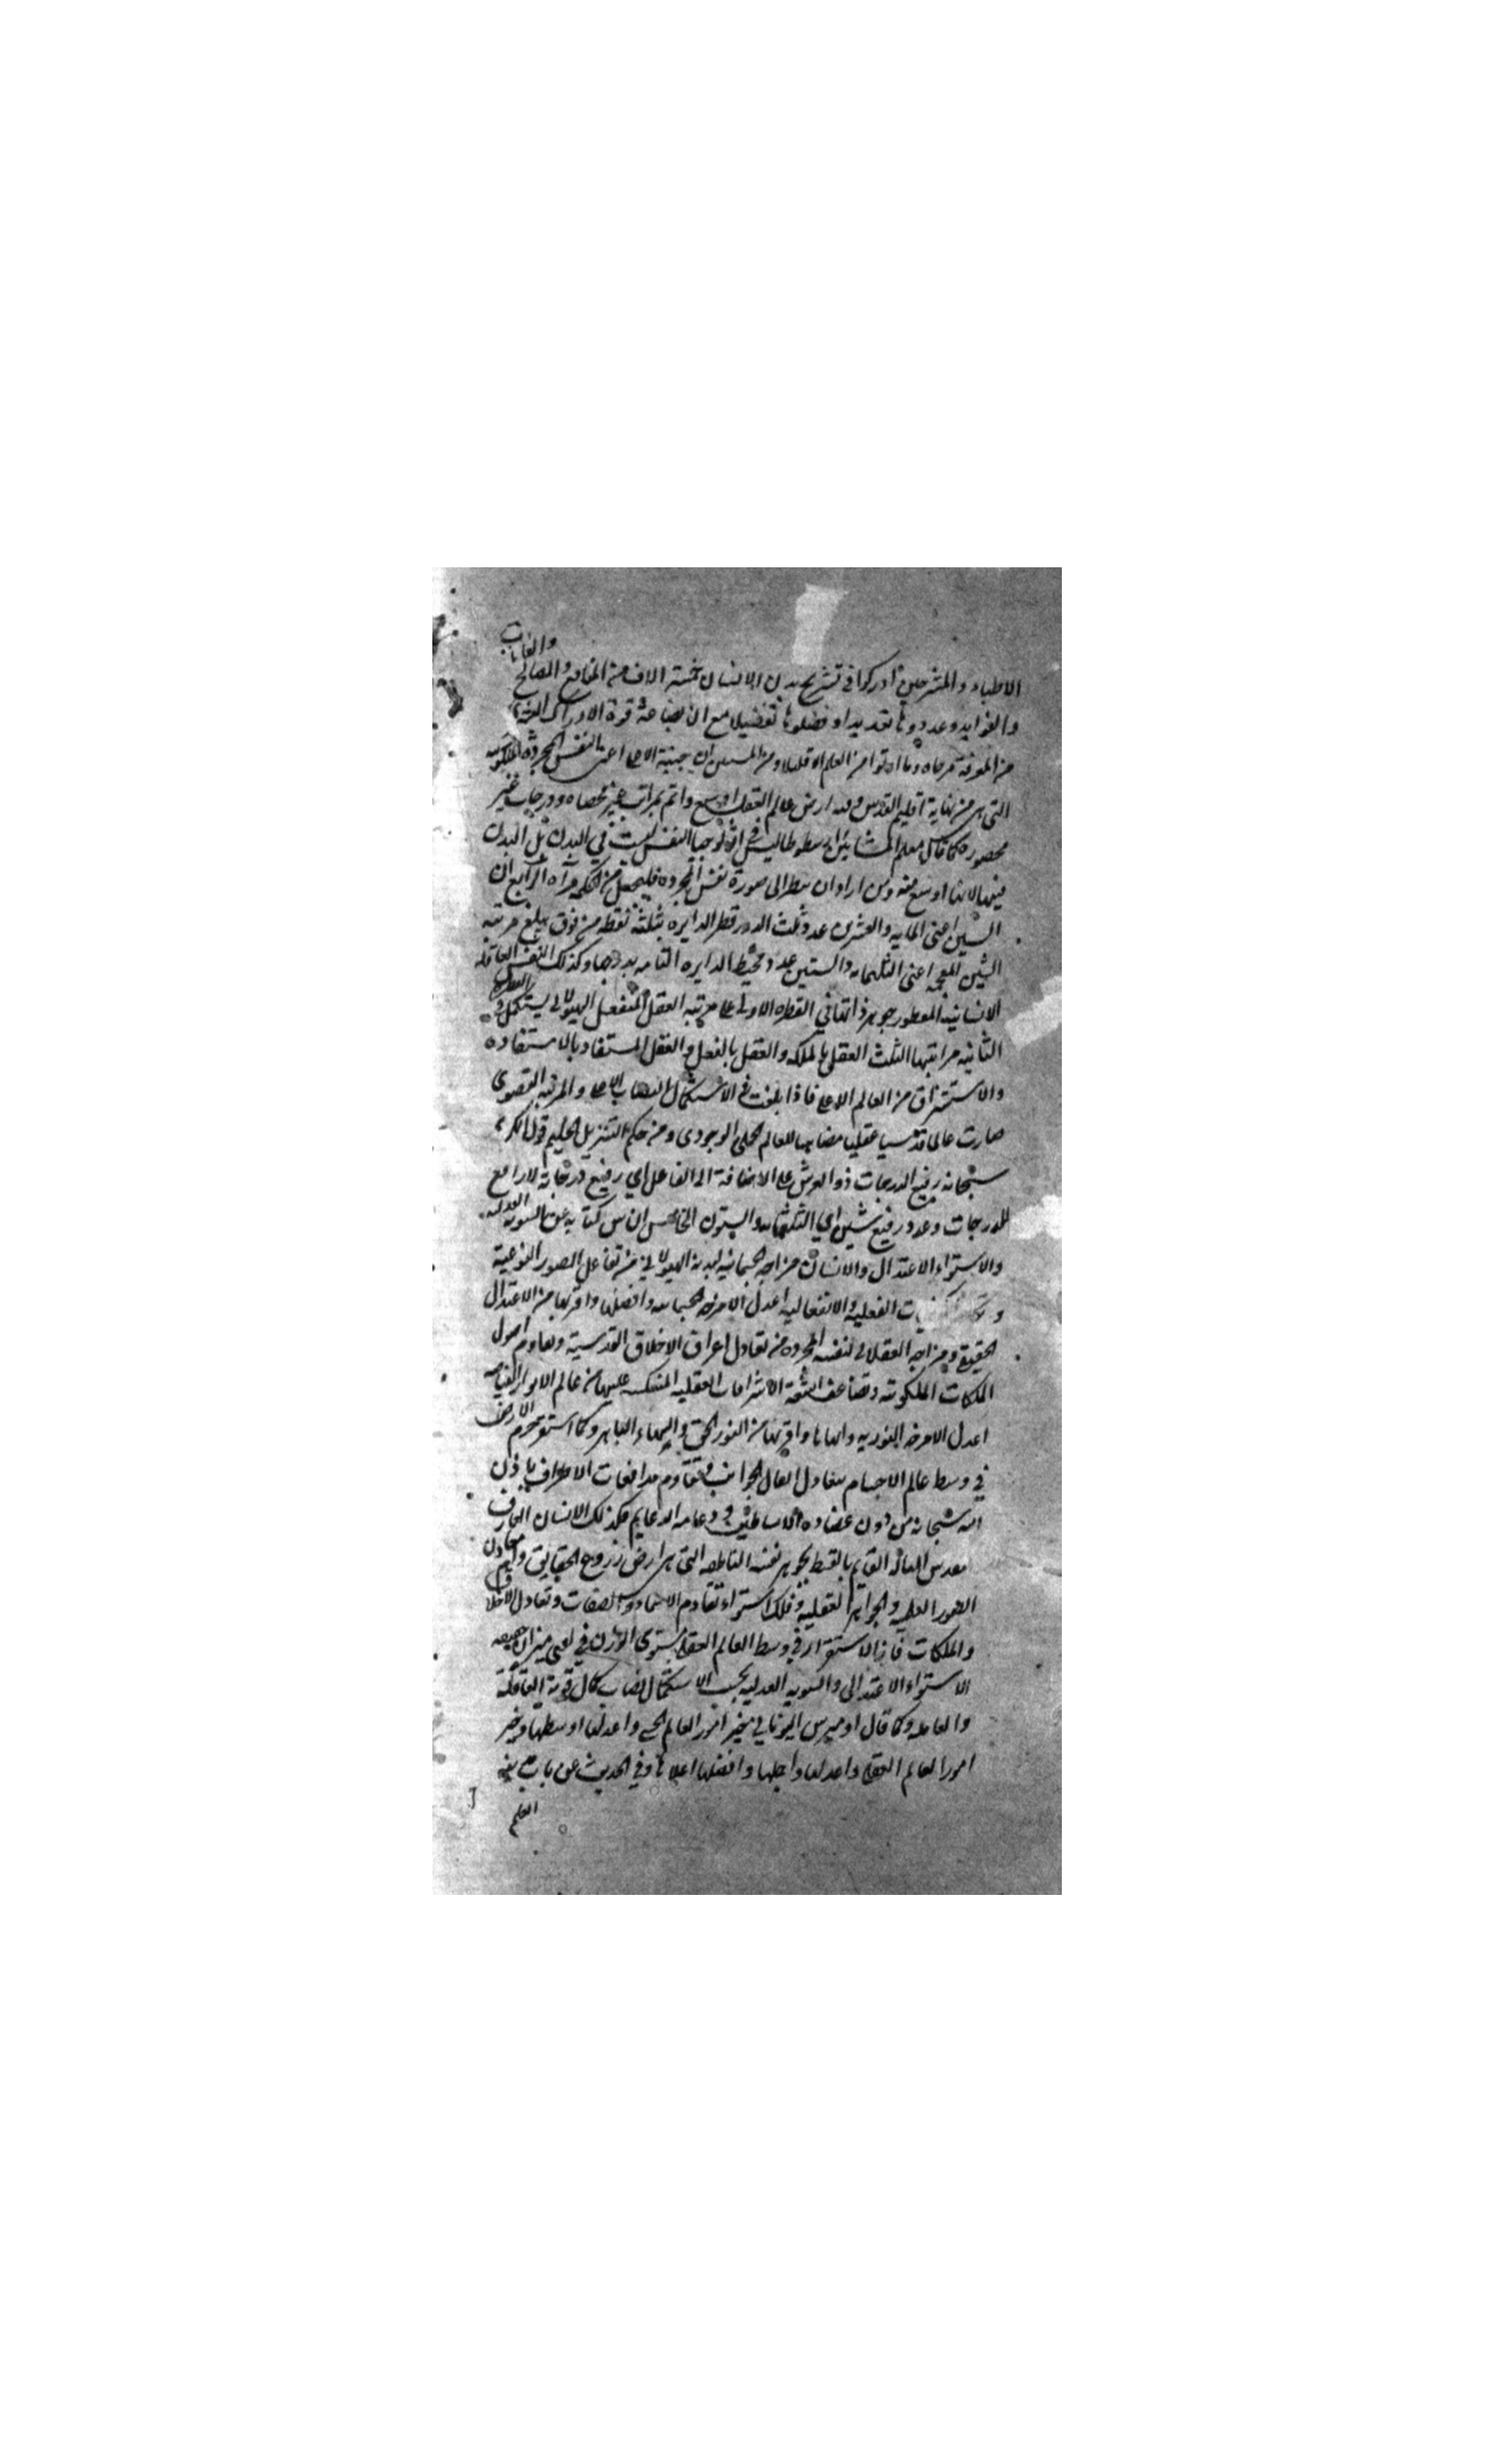 والغايات
الاطباء والمشرحين ادركوا في تشريح بدن الانسان خمسة الاف من المنافع والمصالح
والفوايد وعددوها تعديدا وفصلوها تفصيلا مع ان بضاعة قوة الادراك البشري
من المعرفة مزجاة وما اوتوا من العلم الا قليلا ومن المستبين ان جنبته الاعلى اعنى النفس المجردة الملكوتيه
التي هي من نهاية اقليم القدس ومنه ارض عالم العقل اوسع واتم بمراتب غير محصاه ودرجات غير
محصوره كما قال معلم المشائين ارسطوطاليس في اثولوجيا النفس ليست في البدن بل البدن
فيها لانها اوسع منه ومن اراد ان ينظر الى صورة نفسه المجرده فليجعل من الحكمة مرآه الرابع ان
السين اعنى المايه والعشرين عدد ثلث الدور قطر الدايره بثلثة نقطه من فوق يبلغ مرتبه
الشين المعجمه اعنى الثلثمايه والستين عدد محيط الدايره التامه بدرجها وكذلك النفس العاقله
الانسانيه المفطور جوهر ذاتها في الفطره الاولى على مرتبه العقل المنفعل الهيولاني يستكمل في الفطرة
الثانيه مراتبها الثلث العقل بالملكه والعقل بالفعل والعقل المستفاد بالاستفاده
والاستشراق من العالم الاعلى فاذا بلغت في الاستكمال النصاب الاعلى والمرتبه القصوى
صارت عالما قدسيا عقليا مضاهيا للعالم الجملي الوجودي ومن حكم التنزيل الحكيم قول الكريم
سبحانه رفيع الدرجات ذو العرش على الاضافة الى الفاعل اي رفيع درجاته لا رافع
للدرجات وعدد رفيع شين اي الثلثمايه والستون الخامس ان س كنايه عن السويه العدليه
والاستواء الاعتدال والانسان مزاجه الجسمانيه لبدنه الهيولاني من تفاعل الصور النوعية
الكيفيات الفعليه والانفعاليه اعدل الامزجه الجسمانيه وافضلها واقربها من الاعتدال
الحقيقي ومزاجه العقلاني لنفسه المجرده من تعادل اعراق الاخلاق القدسية وتقاوم اصول
الملكات الملكوتيه وتضاعف اشعة الاشراقات العقليه المنعكسه عليها من عالم الانوار العقليه
اعدل الامزجه النوريه وابهاها واقربها من النور الحق والبهاء الباهر وكما استقر جرم الارض
في وسط عالم الاجسام بتعادل اثقال الجوانب وتقاوم مدافعات الاطراف باذن
الله سبحانه من دون عضاده الاساطين ودعامه الدعايم فكذلك الانسان العارف
المتاله القايم بالقسط بجوهر نفسه الناطقه التي هي ارض زروع الحقايق واقليم معادن
الصور العلميه والجواهر العقلية وفلك استواء تقاوم الاسماء والصفات وتعادل الاخلاق
والملكات فاز بالاستقرار في وسط العالم العقلي مستوى الوزن في كفتي ميزان حقيقه
الاستواء الاعتدالى والسويه العدليه بحسب الاستكمال نصاب كمال قوتيه العاقلة
والعامله وكما قال اوميرس اليوناني خير امور العالم الحسي واعدلها اوسطها وخير
امور العالم العقلي واعدلها واجلها وافضلها اعلاها وفي الحديث عن باب مدينه
العلم